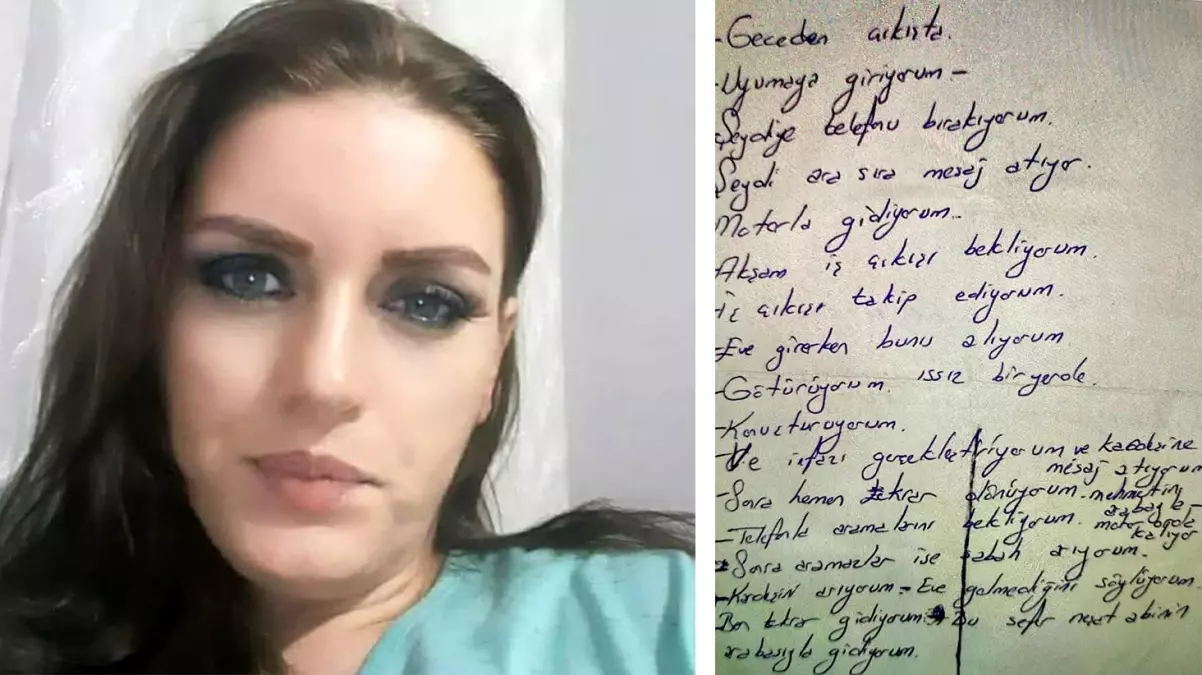 - Geceden çıkışta.
- Uyumaya giriyorum -
Şeydiye telefonu bırakıyorum.
Şeydi ara sıra mesaj atıyor.
Motorla gidiyorum.
Akşam iş çıkışı bekliyorum.
- iş çıkışı takip ediyorum.
- Eve girerken bunu alıyorum
- Götürüyorum. ıssız bir yerde.
- Konuşturuyorum.
- Ve infazı gerçekleştiriyorum ve kardeşine mesaj atıyorum
- Sonra hemen tekrar dönüyorum. mehmetin arabayla -
- Telefonla aramalarını bekliyorum. motor orada kalıyor
- Sonra aramazlar ise sabah arıyorum.
- Kardeşini arıyorum - Eve gelmediğini söylüyorum
Ben tekrar gidiyorum Bu sefer neşet abinin
arabasıyla gidiyorum.